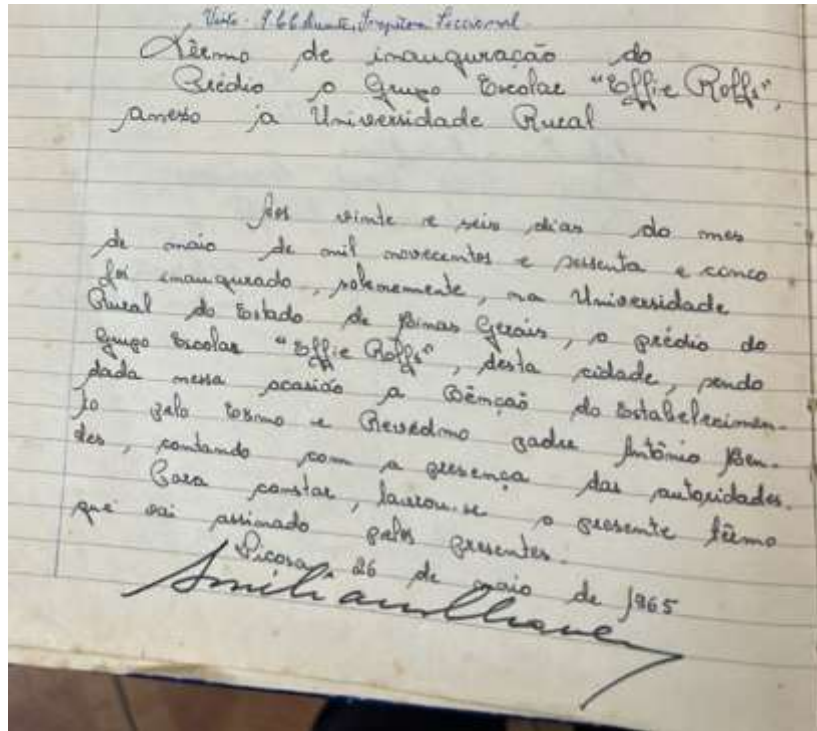 Visto. Inspetora Seccional
Têrmo de inauguração do
Prédio o Grupo Escolar "Effie Rolfs",
anexo à Universidade Rural
Aos vinte e seis dias do mes
de maio de mil novecentos e sessenta e cinco
foi inaugurado, solenemente, na Universidade
Rural do Estado de Minas Gerais, o prédio do
Grupo Escolar "Effie Rolfs", desta cidade, sendo
dada nessa ocasião a Bênção do Estabelecimen-
to pelo Exsmo e Revedmo padre Antônio Men-
des, contando com a presença das autoridades.
Para constar, lavrou-se o presente têrmo
que vai assinado pelos presentes.
Viçosa, 26 de maio de 1965